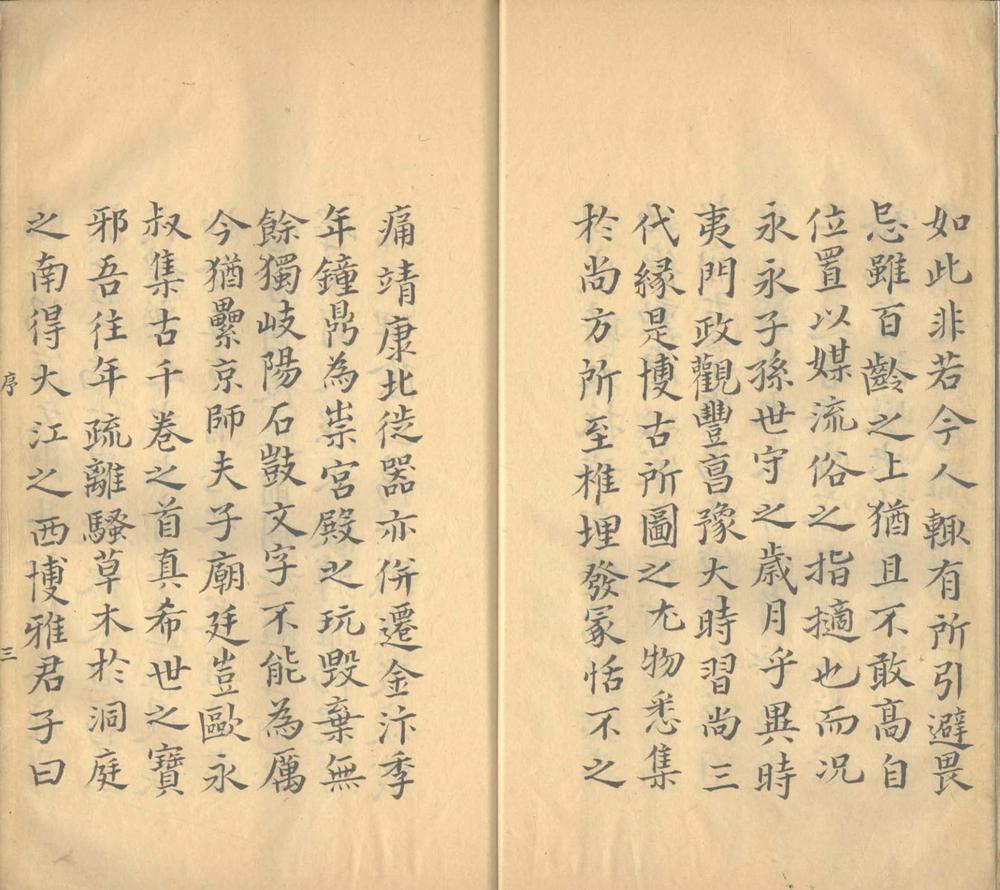 如此非若今人輙有所引避畏
忌雖百齡之上猶且不敢高自
位置以媒流俗之指擿也而况
永永子孫世守之歳月乎異時
夷門政觀豐亯豫大時習尚三
代緣是博古所圖之尤物悉集
於尚方所至椎埋發冢恬不之
痛靖康北徙器亦併遷金汴季
年鐘鼎為祟宮殿之玩毀棄無
餘獨岐陽石鼓文字不能為厲
今猶纍京師夫子廟廷豈歐永
叔集古千卷之首真希世之寶
邪吾往年疏離騷草木於洞庭
之南得大江之西博雅君子曰
序
三